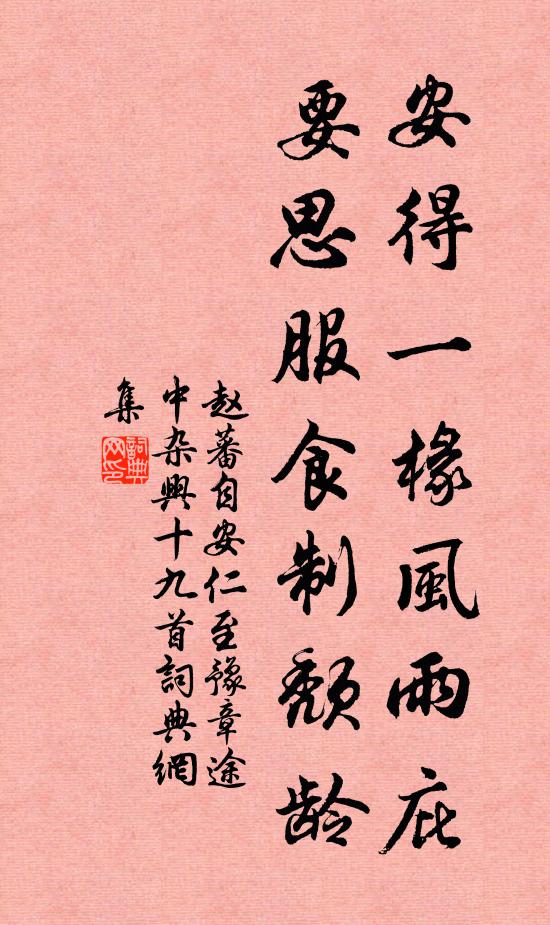 安得一椽風雨庇
要思服食制頹齡
赵蕃自安仁至豫章途
中杂興十九首詞典網
集
詞典網印